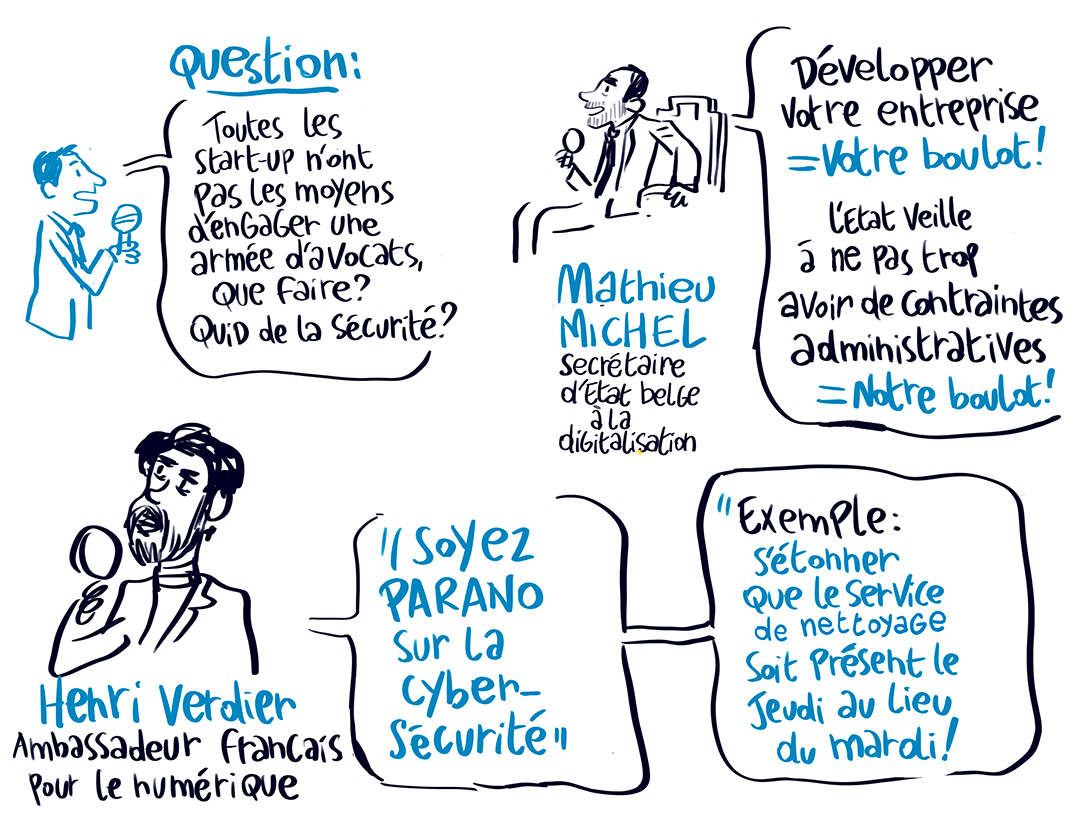 Question:
Toutes les
start-up n'ont
pas les moyens
d'engager une
armée d'avocats,
que faire?
Quid de la sécurité?
Mathieu
MICHEL
secrétaire
d'Etat belge
à la
digitalisation
Développer
votre entreprise
= Votre boulot!
l'Etat veille
à ne pas trop
avoir de contraintes
administratives
= Notre boulot!
Henri Verdier
Ambassadeur francais
pour le numérique
"Soyez
PARANO
sur la
cyber-
sécurité"
"Exemple:
s'étonner
que le service
de nettoyage
soit présent le
jeudi au lieu
du mardi!